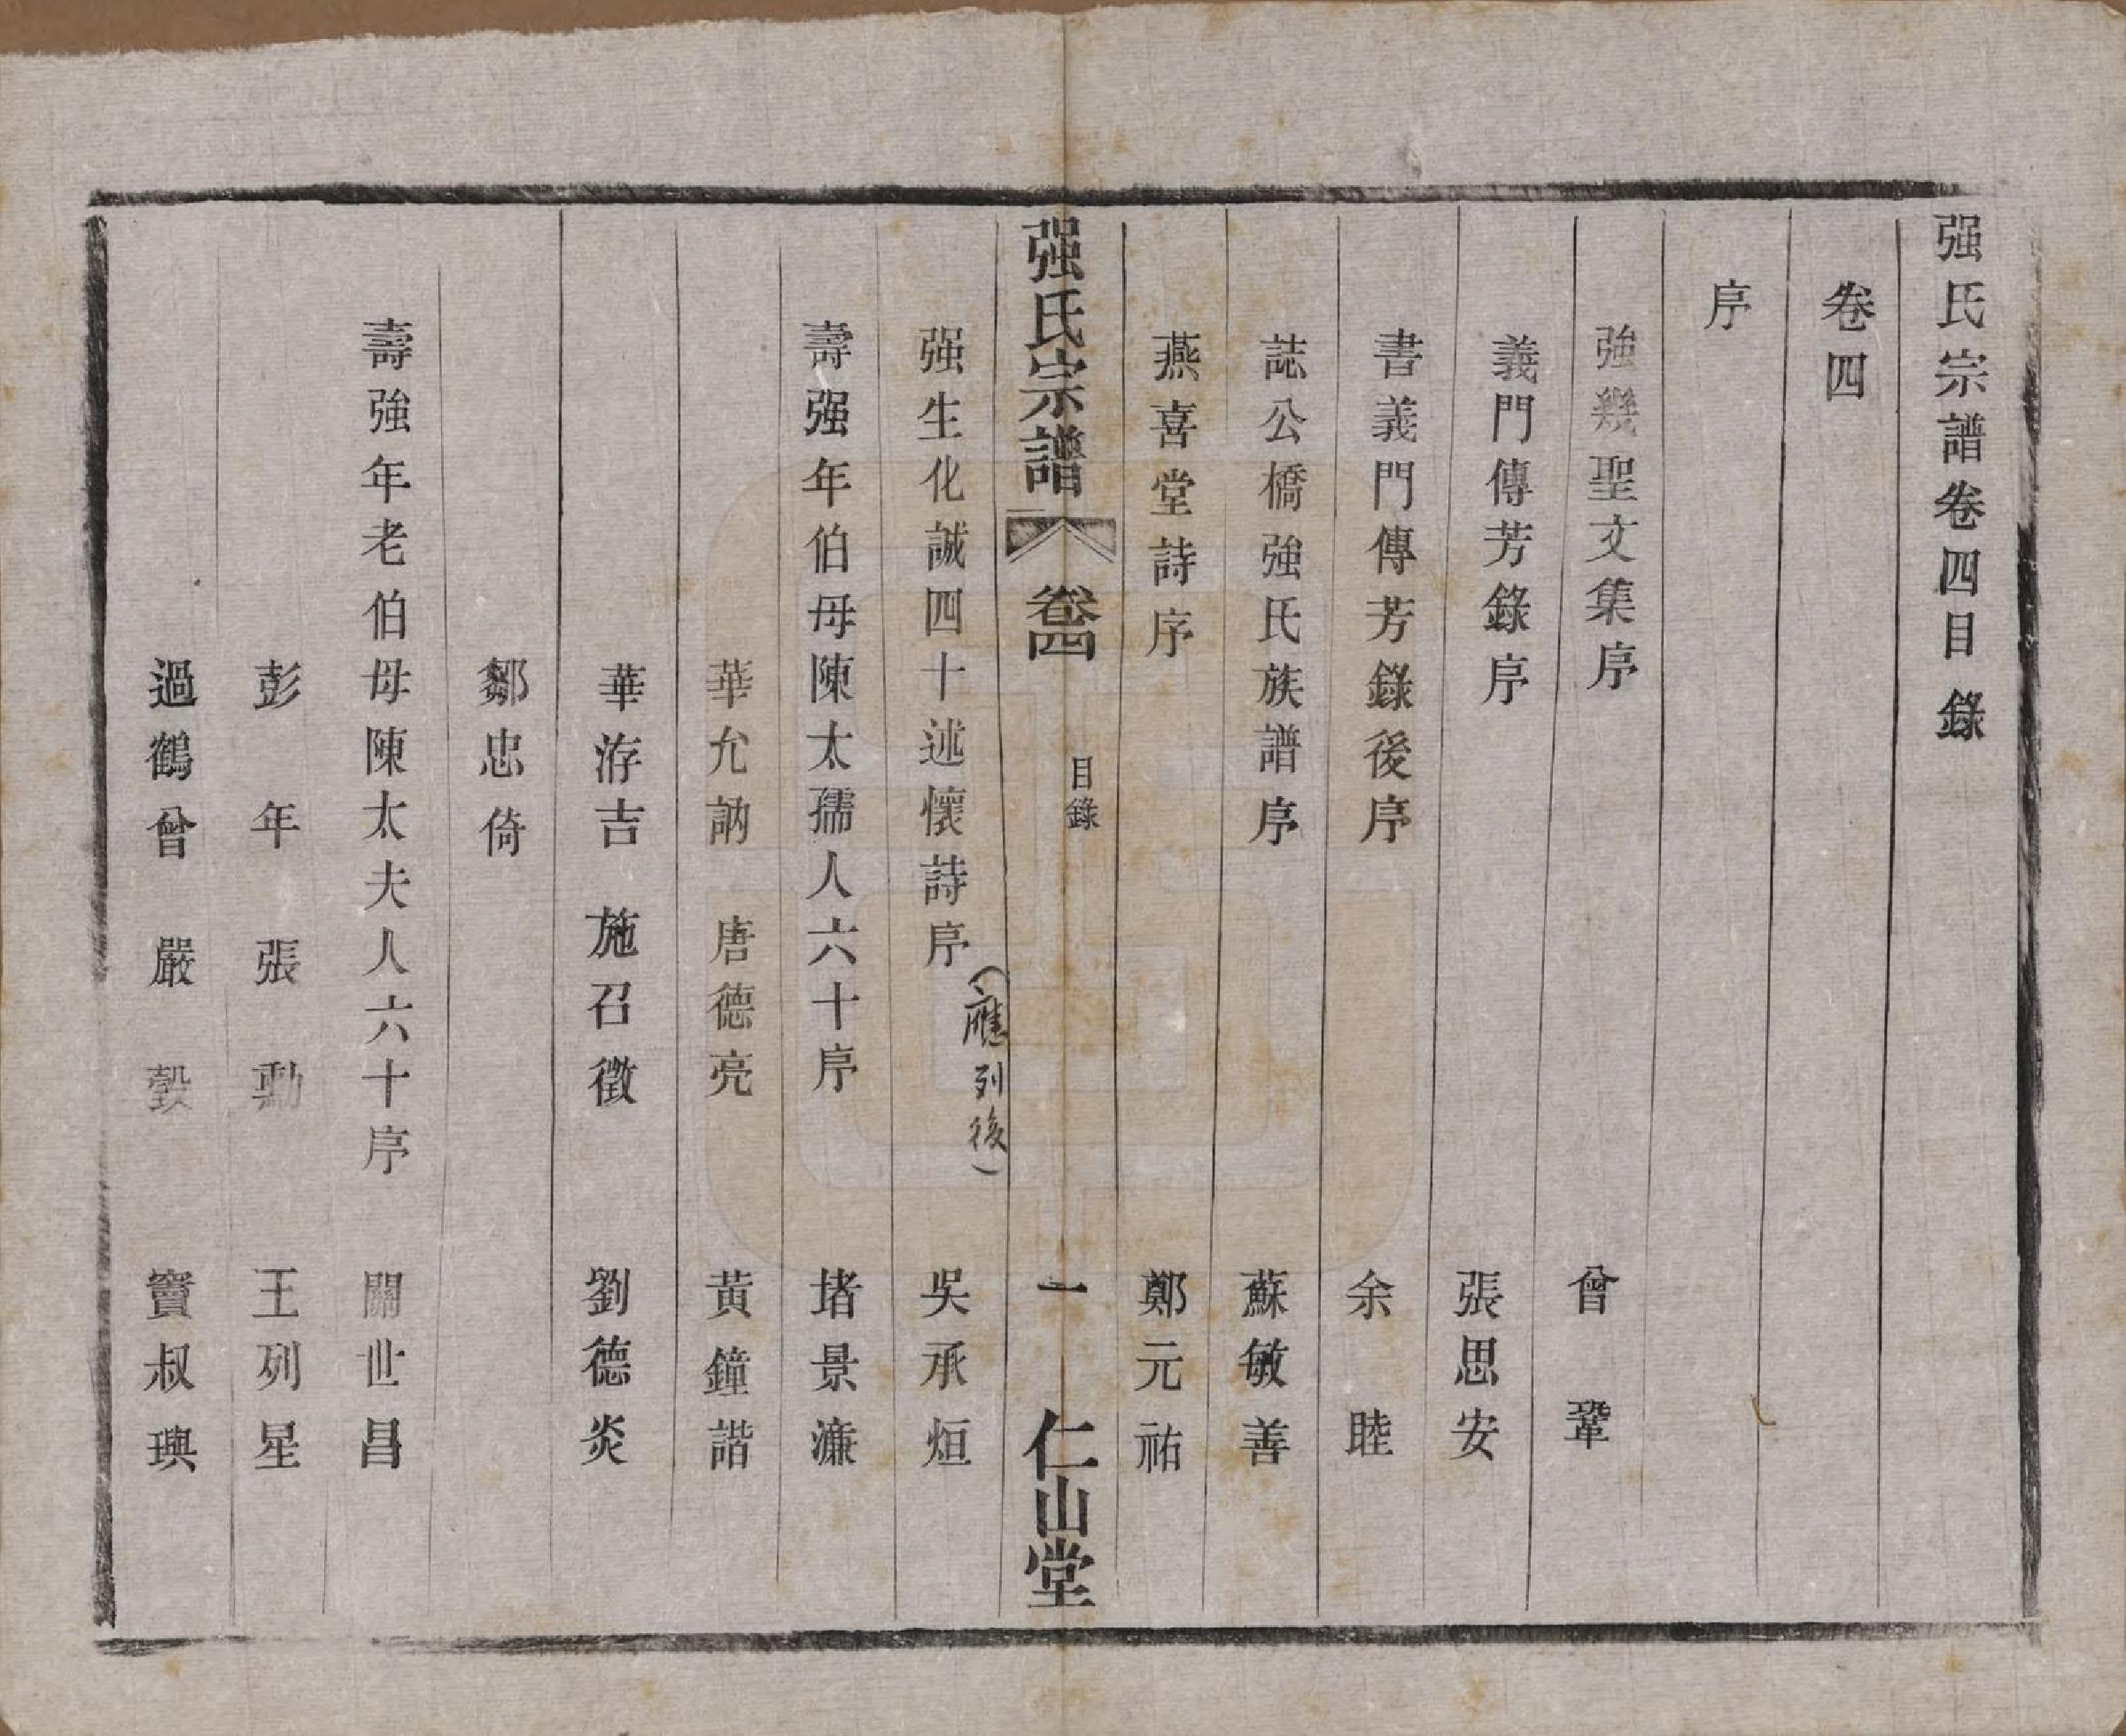 强氏宗譜卷四目錄
卷四
序
強幾聖文集序 曾鞏
義門傳芳錄序 張思安
書義門傳芳錄後序 余睦
誌公橋強氏族譜序 蘇敏善
燕喜堂詩序 鄭元祐
强氏宗譜 卷四 目錄 一 仁山堂
强生化誠四十述懷詩序 吳承烜
(應列後)
壽强年伯母陳太孺人六十序 堵景濂
華允訥 唐德亮 黃鐘諧
華洊吉 施召徵 劉德炎
鄒忠倚
壽強年老伯母陳太夫人六十序 關世昌
彭年 張勳 王列星
過鶴曾 嚴瑴 竇叔璵